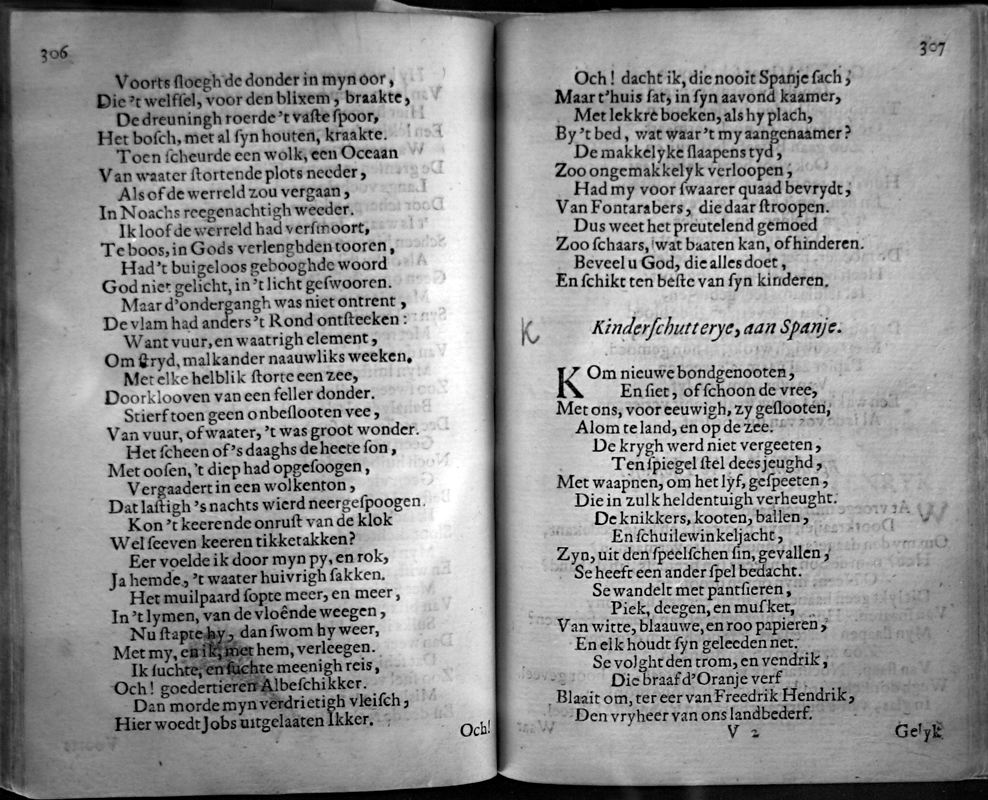 306
Voorts ſloegh de donder in myn oor,
Die 't welfſel, voor den blixem, braakte,
De dreuningh roerde 't vaſte ſpoor,
Het boſch, met al ſyn houten, kraakte.
Toen ſcheurde een wolk, een Oceaan
Van waater ſtortende plots needer,
Als of de werreld zou vergaan,
In Noachs reegenachtigh weeder.
Ik loof de werreld had verſmoort,
Te boos, in Gods verlenghden tooren,
Had 't buigeloos gebooghde woord
God niet gelicht, in 't licht geſwooren.
Maar d'ondergangh was niet ontrent,
De vlam had anders 't Rond ontſteeken:
Want vuur, en waatrigh element,
Om ſtryd, malkander naauwliks weeken.
Met elke helblik ſtorte een zee,
Doorklooven van een feller donder.
Stierf toen geen onbeſlooten vee,
Van vuur, of waater, 't was groot wonder.
Het ſcheen of 's daaghs de heete ſon,
Met ooſen, 't diep had opgeſoogen,
Vergaadert in een wolkenton,
Dat laſtigh 's nachts wierd neergeſpoogen.
Kon 't keerende onruſt van de klok
Wel ſeeven keeren tikketakken?
Eer voelde ik door myn py, en rok,
Ja hemde, 't waater huivrigh ſakken.
Het muilpaard ſopte meer, en meer,
In 't lymen, van de vloênde weegen,
Nu ſtapte hy, dan ſwom hy weer,
Met my, en ik, met hem, verleegen.
Ik ſuchte, en ſuchte meenigh reis,
Och! goedertieren Albeſchikker.
Dan morde myn verdrietigh vleiſch,
Hier woedt Jobs uitgelaaten Ikker.
Och!
307
Och! dacht ik, die nooit Spanje ſach,
Maar t'huis ſat, in ſyn aavond kaamer,
Met lekkre boeken, als hy plach,
By 't bed, wat waar 't my aangenaamer?
De makkelyke ſlaapens tyd,
Zoo ongemakkelyk verloopen,
Had my voor ſwaarer quaad bevrydt,
Van Fontarabers, die daar ſtroopen.
Dus weet het preutelend gemoed
Zoo ſchaars, wat baaten kan, of hinderen.
Beveel u God, die alles doet,
En ſchikt ten beſte van ſyn kinderen.
K
Kinderſchutterye, aan Spanje.
KOm nieuwe bondgenooten,
En ſiet, of ſchoon de vree,
Met ons, voor eeuwigh, zy geſlooten,
Alom te land, en op de zee.
De krygh werd niet vergeeten,
Ten ſpiegel ſtel dees jeughd,
Met waapnen, om het lyf, geſpeeten,
Die in zulk heldentuigh verheught.
De knikkers, kooten, ballen,
En ſchuilewinkeljacht,
Zyn, uit den ſpeelſchen ſin, gevallen,
Se heeft een ander ſpel bedacht.
Se wandelt met pantſieren,
Piek, deegen, en muſket,
Van witte, blaauwe, en roo papieren,
En elk houdt ſyn geleeden net.
Se volght den trom, en vendrik,
Die braaf d'Oranje verf
Blaait om, ter eer van Freedrik Hendrik,
Den vryheer van ons landbederf.
V 2
Gelyk